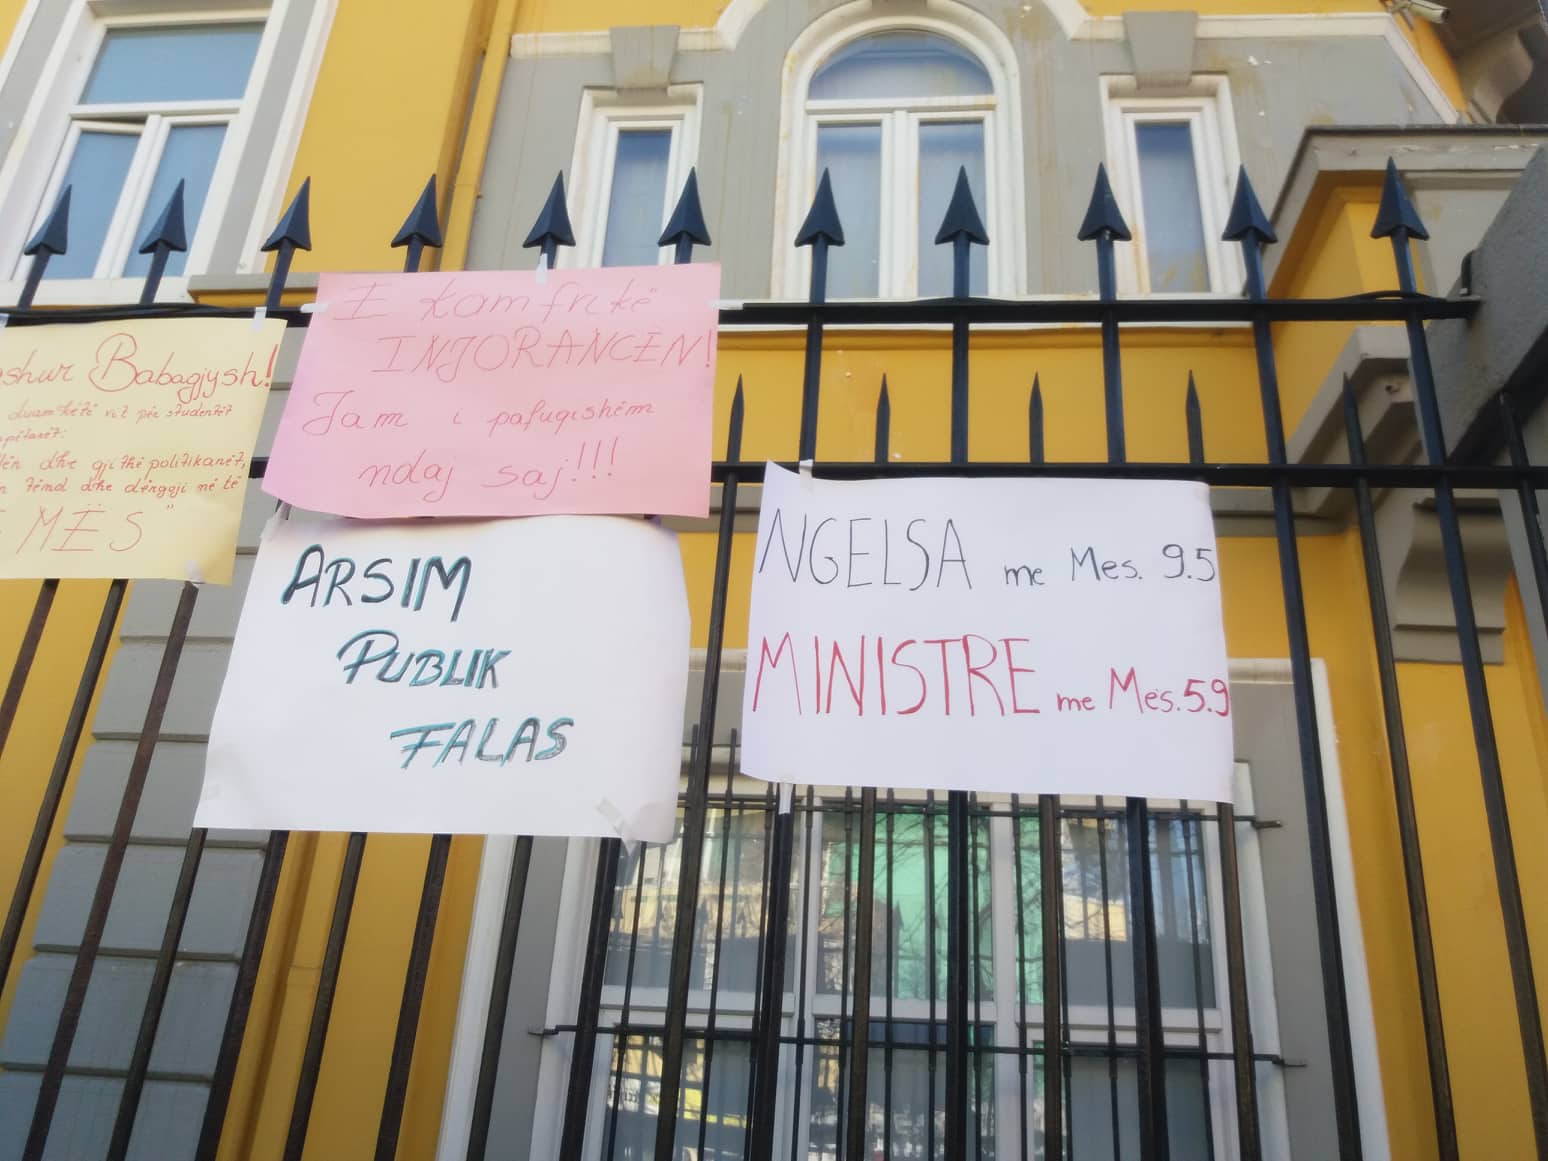 Babagjysh!
duam këtë vit për studentët
dhe gjithë politikanët,
dhe dërgoji në të
MËS"
E kam frikë
INJORANCËN!
Jam i pafuqishëm
ndaj saj!!!
ARSIM
PUBLIK
FALAS
NGELSA me Mes. 9.5
MINISTRE me Mes. 5.9